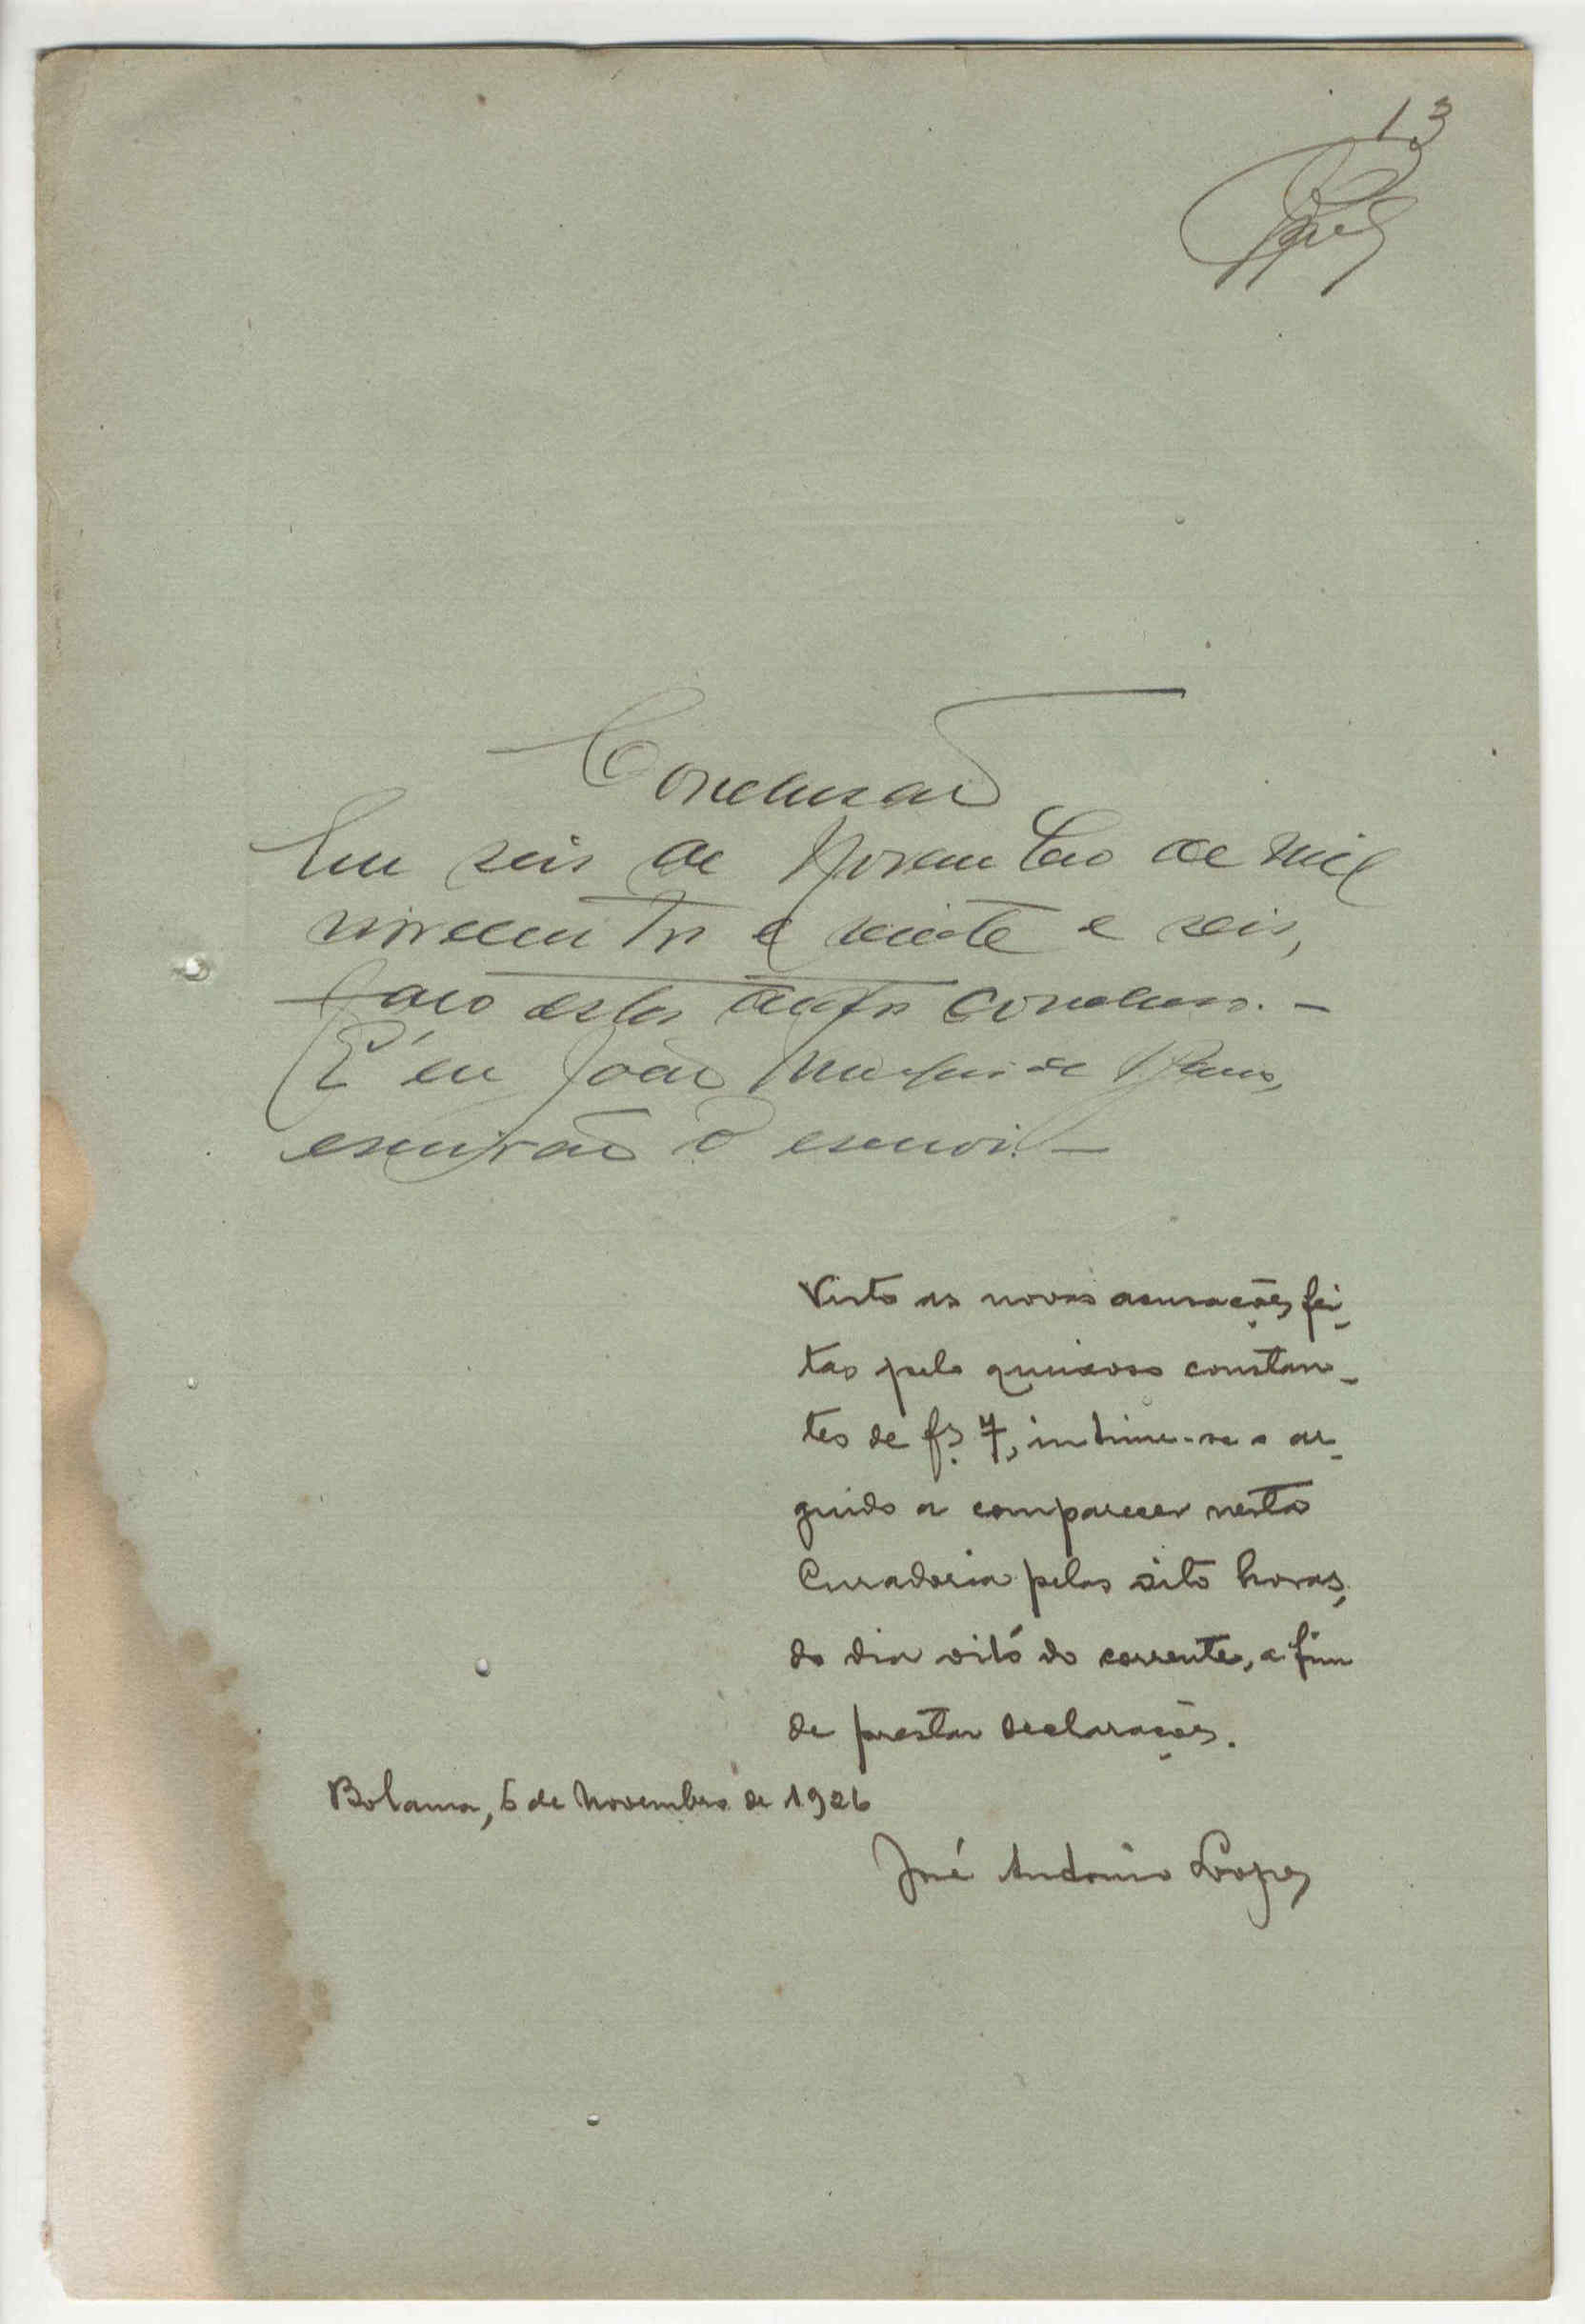 13
Conclusão
Em seis de Novembro de mil
novecentos e vinte e seis,
faço estes autos conclusos. -
E eu João
escrivão o escrevi. -
Visto as novas acusações fei-
tas pelo queixoso constan-
tes de fs. 7, intime-se o ar-
guido a comparecer nesta
Curadoria pelas oito horas,
do dia oito do corrente, a fim
de prestar declarações.
Bolama, 6 de Novembro de 1926
José Antonio Lopes